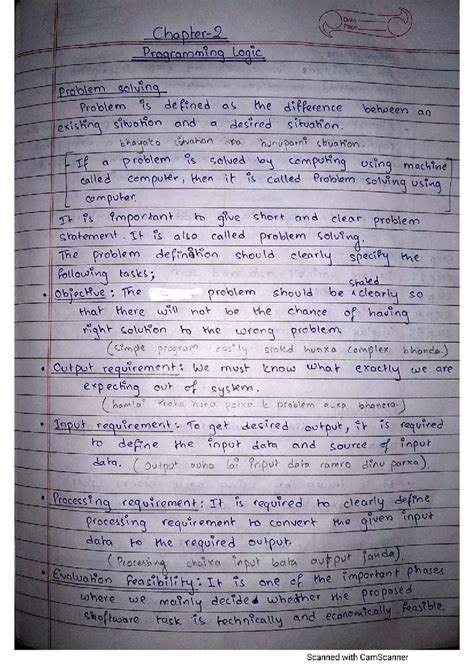 Date
Page
Chapter-2
Programming Logic
Problem solving
Problem is defined as the difference between an
existing situation and a desired situation.
bhayeko situation ra hunuparni situation.
If a problem is solved by computing using machine
called computer, then it is called Problem solving using
computer.
It is important to give short and clear problem
statement. It is also called problem solving.
The problem defination should clearly specify the
following tasks;
• Objective: The problem should be ^ stated clearly so
that there will not be the chance of having
right solution to the wrong problem.
(Simple program easily stated hunxa complex bhanda.)
• Output requirement: We must know what exactly we are
expecting out of system.
(hamlai thaha huna parxa k problem auxa bhanera.)
• Input requirement: To get desired output, it is required
to define the input data and source of input
data. (Output auna lai input data ramro dinu parxa)
• Processing requirement: It is required to clearly define
processing requirement to convert the given input
data to the required output.
(Processing chaixa input bata output janda).
• Evaluation feasibility: It is one of the important phases
where we mainly decided whether the proposed
shoftware task is technically and economically feasible.
Scanned with CamScanner